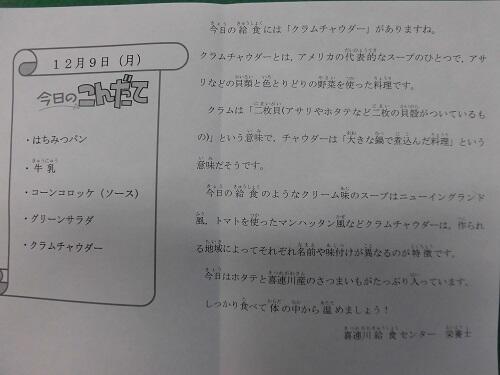 12月9日（月）
今日のこんだて
・はちみつパン
・牛乳
・コーンコロッケ（ソース）
・グリーンサラダ
・クラムチャウダー
今日の給食には「クラムチャウダー」がありますね。
クラムチャウダーとは，アメリカの代表的なスープのひとつで，アサ
リなどの貝類と色とりどりの野菜を使った料理です。
クラムは「二枚貝(アサリやホタテなど二枚の貝殻がついているも
の)」という意味で，チャウダーは「大きな鍋で煮込んだ料理」という
意味だそうです。
今日の給食のようなクリーム味のスープはニューイングランド
風，トマトを使ったマンハッタン風などクラムチャウダーは，作られ
る地域によってそれぞれ名前や味付けが異なるのが特徴です。
今日はホタテと喜連川産のさつまいもがたっぷり入っています。
しっかり食べて体の中から温めましょう！
喜連川給食センター　栄養士